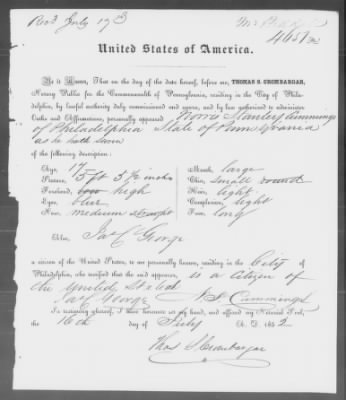 Recd July 17th
4657
United States of America.
Be it Known, That on the day of the date hereof, before me, THOMAS S. CROMBARGAR,
Notary Public for the Commonwealth of Pennsylvania, residing in the City of Phila-
delphia, by lawful authority duly commissioned and sworn, and by law authorized to administer
Oaths and Affirmations, personally appeared Norris Stanley Cummings
of Philadelphia State of Pennsylvania
as he hath sworn
of the following description:
Age, 17 Mouth, large
Stature, 5 ft 5 1/2 inches Chin, small round
Forehead, low high Hair, light
Eyes, blue Complexion, light
Nose, medium straight Face, long
Also, Jas C George
a citizen of the United States, to me personally known, residing in the City of
Philadelphia, who testified that the said appearer, is a citizen of
the United States
Jas C George N. S. Cummings
In testimony whereof, I have hereunto set my hand, and affixed my Notarial Seal,
the 16th day of July A. D. 1852
Thos S Crombargar